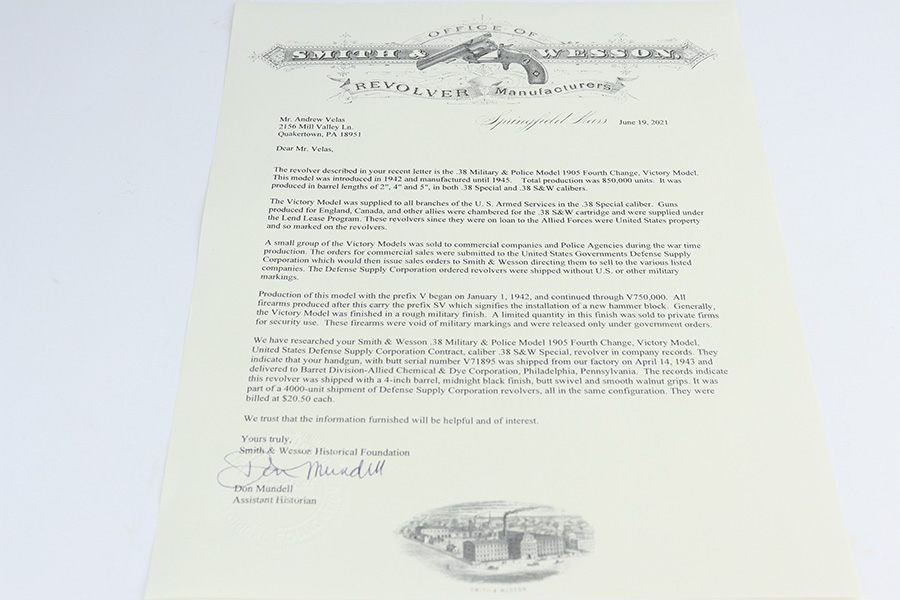 OFFICE OF
SMITH & WESSON,
REVOLVER Manufacturers
Springfield Mass June 19, 2021
Mr. Andrew Velas
2156 Mill Valley Ln.
Quakertown, PA 18951
Dear Mr. Velas,
The revolver described in your recent letter is the .38 Military & Police Model 1905 Fourth Change, Victory Model.
This model was introduced in 1942 and manufactured until 1945. Total production was 850,000 units. It was
produced in barrel lengths of 2", 4" and 5", in both .38 Special and .38 S&W calibers.
The Victory Model was supplied to all branches of the U. S. Armed Services in the .38 Special caliber. Guns
produced for England, Canada, and other allies were chambered for the .38 S&W cartridge and were supplied under
the Lend Lease Program. These revolvers since they were on loan to the Allied Forces were United States property
and so marked on the revolvers.
A small group of the Victory Models was sold to commercial companies and Police Agencies during the war time
production. The orders for commercial sales were submitted to the United States Governments Defense Supply
Corporation which would then issue sales orders to Smith & Wesson directing them to sell to the various listed
companies. The Defense Supply Corporation ordered revolvers were shipped without U.S. or other military
markings.
Production of this model with the prefix V began on January 1, 1942, and continued through V750,000. All
firearms produced after this carry the prefix SV which signifies the installation of a new hammer block. Generally,
the Victory Model was finished in a rough military finish. A limited quantity in this finish was sold to private firms
for security use. These firearms were void of military markings and were released only under government orders.
We have researched your Smith & Wesson .38 Military & Police Model 1905 Fourth Change, Victory Model,
United States Defense Supply Corporation Contract, caliber .38 S&W Special, revolver in company records. They
indicate that your handgun, with butt serial number V71895 was shipped from our factory on April 14, 1943 and
delivered to Barret Division-Allied Chemical & Dye Corporation, Philadelphia, Pennsylvania. The records indicate
this revolver was shipped with a 4-inch barrel, midnight black finish, butt swivel and smooth walnut grips. It was
part of a 4000-unit shipment of Defense Supply Corporation revolvers, all in the same configuration. They were
billed at $20.50 each.
We trust that the information furnished will be helpful and of interest.
Yours truly,
Smith & Wesson Historical Foundation
Don Mundell
Don Mundell
Assistant Historian
SMITH & WESSON